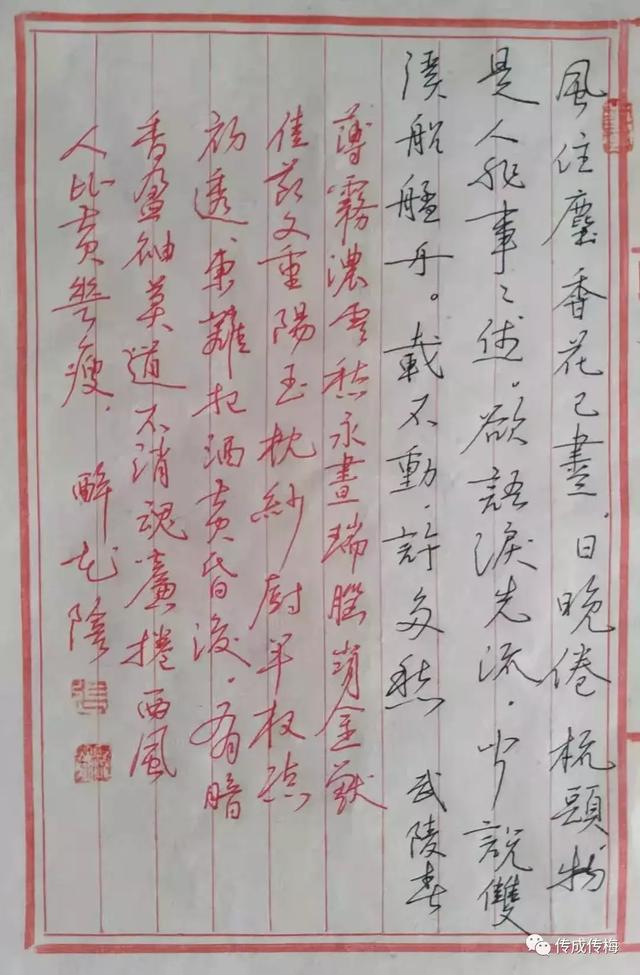 風住塵香花已盡，日晚倦梳頭物
是人非事〻休。欲語淚先流，聞說雙
溪船艋舟。載不動，許多愁 武陵春
薄霧濃雲愁永晝瑞腦消金獸
佳節又重陽玉枕紗厨半夜涼
初透東籬把酒黄昏後，有暗
香盈袖莫道不消魂簾捲西風
人比黄花瘦，醉花陰
传成传梅